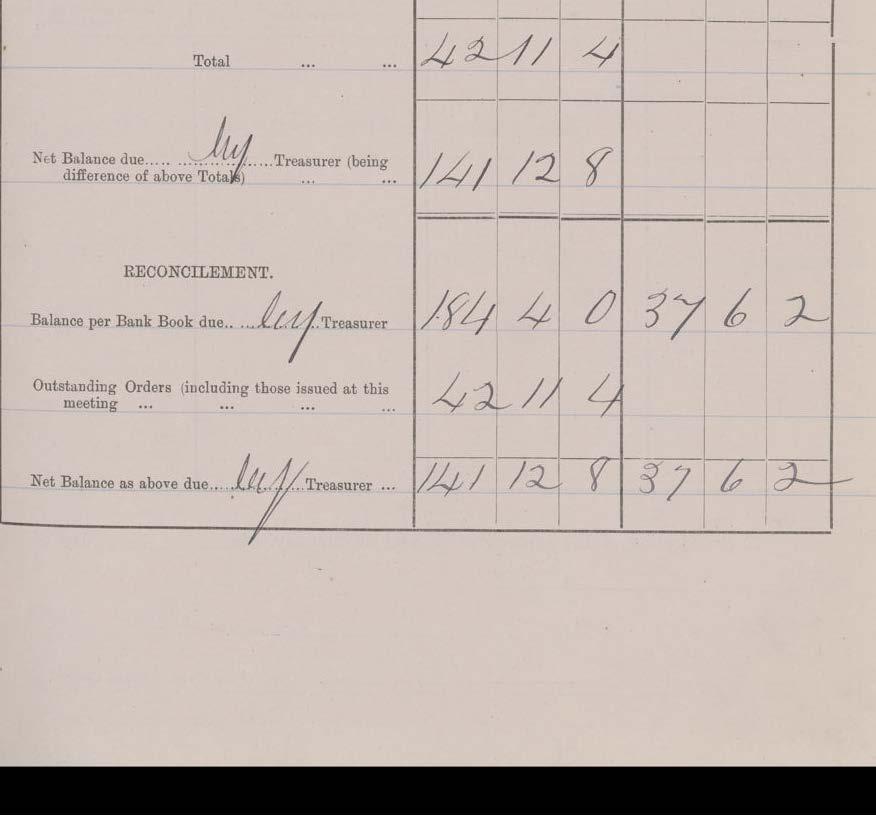 Total ... ... 42 11 4
Net Balance due..... ......by......Treasurer (being
difference of above Totals) ... ... 141 12 8
RECONCILEMENT.
Balance per Bank Book due.. ...by..Treasurer 184 4 0 37 6 2
Outstanding Orders (including those issued at this
meeting ... ... ... ... 42 11 4
Net Balance as above due....by....Treasurer ... 141 12 8 37 6 2